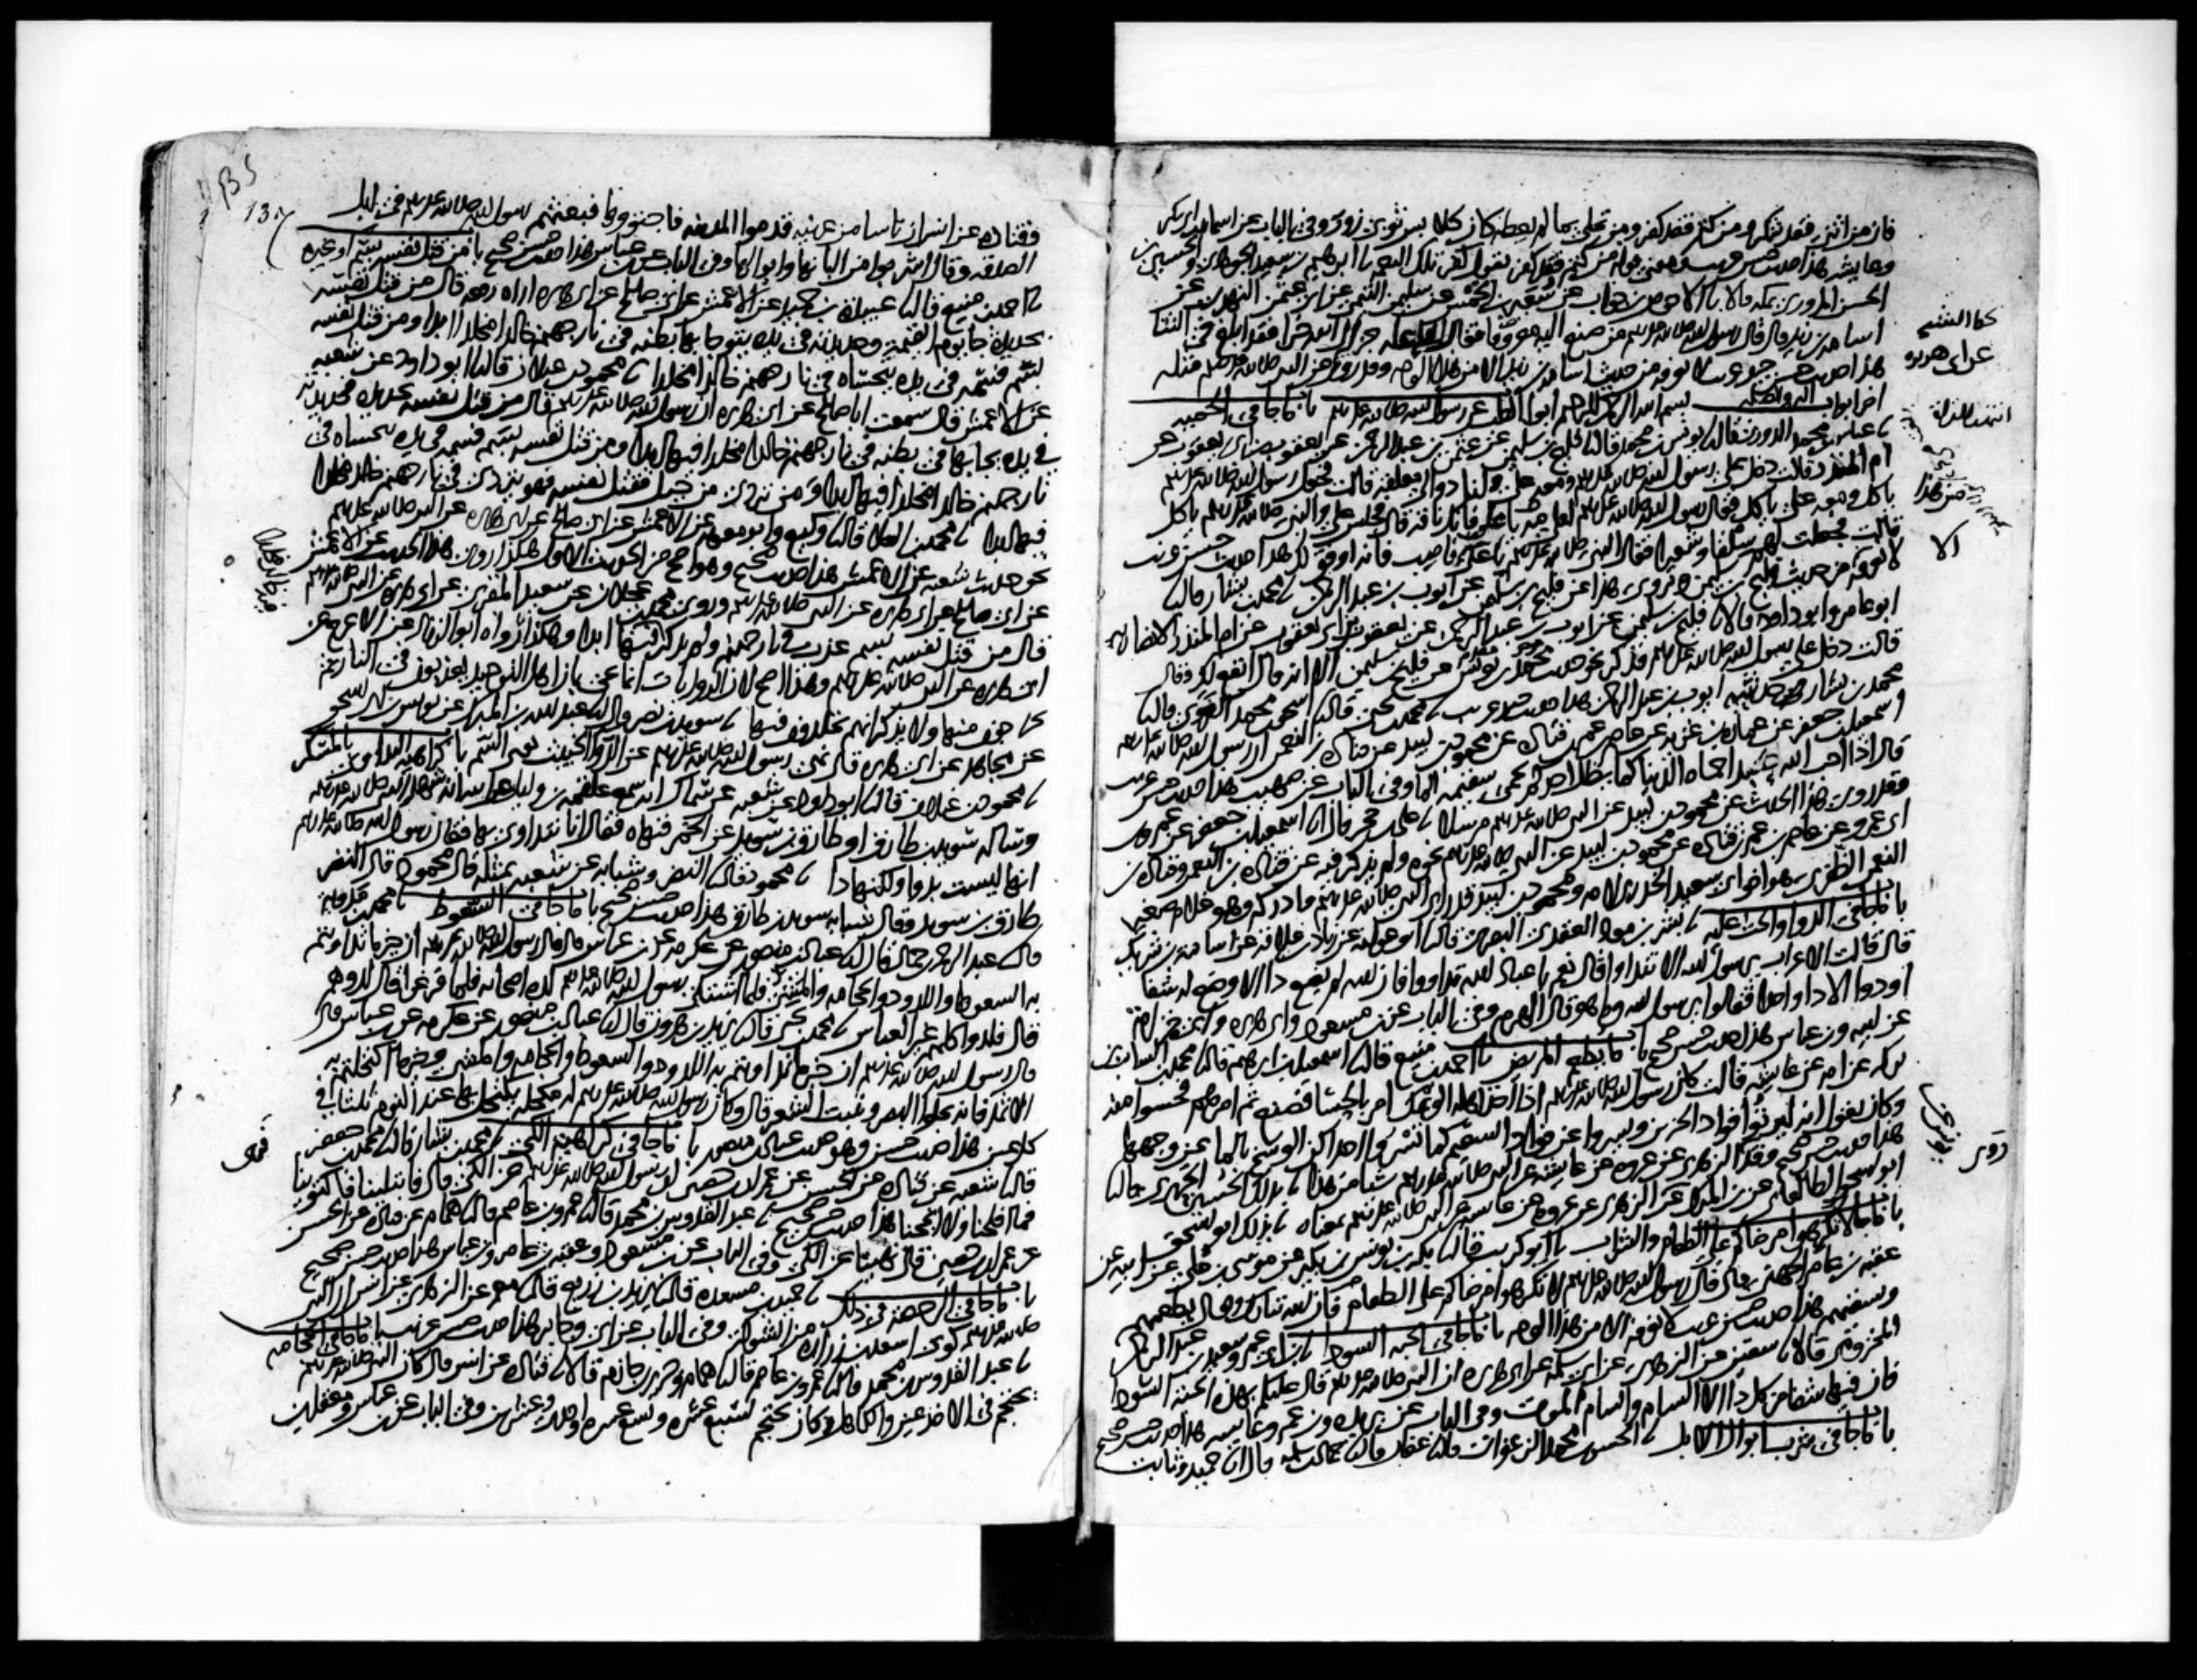 فان من اثنى فقد شكر ومن كتم فقد كفر ومن تحلى بما لم يعطه كان كلابس ثوبي زور وفي الباب عن اسما بنت ابي بكر
وعايشه هذا حديث حسن غريب ومعنى قوله من كتم فقد كفر يقول كفر تلك النعمه نا ابرهيم بن سعيد الجوهري والحسين بن
الحسن المروزي بمكه قالا نا الاحوص بن جواب عن سعير بن الخمس عن سليمن التيمي عن ابي عثمن النهدي عن
اسامه بن زيد قال قال رسول الله صلى الله عليه وسلم من صنع اليه معروفا فقال لفاعله جزاك الله خيرا فقد ابلغ في الثنا
هذا حديث حسن جيد غريب لا نعرفه من حديث اسامه بن زيد الا من هذا الوجه وقد روي عن ابي هريره عن النبي صلى الله عليه وسلم مثله
اخر ابواب البر والصله بسم الله الرحمن الرحيم ابواب الطب عن رسول الله صلى الله عليه وسلم باب ما جا في الحميه
نا عباس بن محمد الدوري قال نا يونس بن محمد قال نا فليح بن سليمن عن عثمن بن عبد الرحمن عن يعقوب بن ابي يعقوب عن
ام المنذر قالت دخل علي رسول الله صلى الله عليه وسلم ومعه علي ولنا دوالي معلقه قالت فجعل رسول الله صلى الله عليه وسلم
ياكل ومعه علي ياكل فقال رسول الله صلى الله عليه وسلم لعلي مه مه يا علي فانك ناقه قال فجلس علي والنبي صلى الله عليه وسلم ياكل
قالت فجعلت لهم سلقا وشعيرا فقال النبي صلى الله عليه وسلم يا علي من هذا فاصب فانه اوفق لك هذا حديث حسن غريب
لا نعرفه الا من حديث فليح بن سليمن ويروى هذا عن فليح بن سليمن عن ايوب بن عبد الرحمن نا محمد بن بشار قال نا
ابو عامر وابو داود قالا نا فليح بن سليمن عن ايوب بن عبد الرحمن عن يعقوب بن ابي يعقوب عن ام المنذر الانصاريه
قالت دخل علي رسول الله صلى الله عليه وسلم فذكر نحو حديث يونس بن محمد عن فليح بن سليمن الا انه قال انفع لك وقال
محمد بن بشار حدثنيه ايوب بن عبد الرحمن هذا حديث جيد غريب نا محمد بن يحيى قال نا اسحق بن محمد الفروي قال نا
اسمعيل بن جعفر عن عماره بن غزيه عن عاصم بن عمر بن قتاده عن محمود بن لبيد عن قتاده بن النعمن ان رسول الله صلى الله عليه وسلم
قال اذا احب الله عبدا حماه الدنيا كما يظل احدكم يحمي سقيمه الما وفي الباب عن صهيب هذا حديث حسن غريب
وقد روي هذا الحديث عن محمود بن لبيد عن النبي صلى الله عليه وسلم مرسلا نا علي بن حجر قال انا اسمعيل بن جعفر عن عمرو بن
ابي عمرو عن عاصم بن عمر بن قتاده عن محمود بن لبيد عن النبي صلى الله عليه وسلم نحوه ولم يذكر فيه عن قتاده بن النعمن وقتاده بن
النعمن الظفري هو اخو ابي سعيد الخدري لامه ومحمود بن لبيد قد راى النبي صلى الله عليه وسلم وادركه وهو غلام صغير
باب ما جا في الدوا والحث عليه نا بشر بن معاذ العقدي البصري قال نا ابو عوانه عن زياد بن علاقه عن اسامه بن شريك
قال قالت الاعراب يرسول الله الا نتداوا قال نعم يا عباد الله تداووا فان الله لم يضع دا الا وضع له شفا
او دوا الا دا واحدا فقالوا يرسول الله وما هو قال الهرم وفي الباب عن بن مسعود وابي هريره وابي خزامه
عن ابيه وبن عباس هذا حديث حسن صحيح باب ما يطعم المريض نا احمد بن منيع قال نا اسمعيل بن ابرهيم قال نا محمد بن السايب بن
بركه عن امه عن عايشه قالت كان رسول الله صلى الله عليه وسلم اذا اخذ اهله الوعك امر بالحسا فصنع ثم امرهم فحسوا منه
وكان يقول انه ليرتوا فواد الحزين ويسروا عن فواد السقيم كما تسروا احداكن الوسخ بالما عن وجهها
هذا حديث حسن صحيح وقد روى الزهري عن عروه عن عايشه عن النبي صلى الله عليه وسلم شيا من هذا نا بذلك الحسين الجريري قال نا
ابو اسحق الطالقاني عن بن المبارك عن الزهري عن عروه عن عايشه عن النبي صلى الله عليه وسلم بمعناه نا بذلك ابو اسحق
باب ما جا لا تكرهوا مرضاكم على الطعام والشراب نا ابو كريب قال نا بكر بن يونس بن بكير عن موسى بن علي عن ابيه عن
عقبه بن عامر الجهني قال قال رسول الله صلى الله عليه وسلم لا تكرهوا مرضاكم على الطعام فان الله تبارك وتعالى يطعمهم
ويسقيهم هذا حديث حسن غريب لا نعرفه الا من هذا الوجه باب ما جا في الحبه السودا نا بن ابي عمر وسعيد بن عبد الرحمن
المخزومي قالا نا سفين عن الزهري عن ابي سلمه عن ابي هريره ان النبي صلى الله عليه وسلم قال عليكم بهذه الحبه السودا
فان فيها شفا من كل دا الا السام والسام الموت وفي الباب عن بريده وبن عمر وعايشه هذا حديث حسن صحيح
باب ما جا في شرب ابوال الابل نا الحسن بن محمد الزعفراني قال نا عفان قال نا حماد بن سلمه قال انا حميد وثابت
وقتاده عن انس ان ناسا من عرينه قدموا المدينه فاجتووها فبعثهم رسول الله صلى الله عليه وسلم في ابل
الصدقه وقال اشربوا من البانها وابوالها وفي الباب عن بن عباس هذا حديث حسن صحيح باب من قتل نفسه بسم او غيره
نا احمد بن منيع قال نا عبيده بن حميد عن الاعمش عن ابي صالح عن ابي هريره اراه رفعه قال من قتل نفسه
بحديده جا يوم القيمه وحديدته في يده يتوجا بها بطنه في نار جهنم خالدا مخلدا ابدا ومن قتل نفسه
بسم فسمه في يده يتحساه في نار جهنم خالدا مخلدا نا محمود بن غيلان قال نا ابو داود عن شعبه
عن الاعمش قال سمعت ابا صالح عن ابي هريره ان رسول الله صلى الله عليه وسلم قال من قتل نفسه بحديده فحديدته
في يده يجا بها في بطنه في نار جهنم خالدا مخلدا فيها ابدا ومن قتل نفسه بسم فسمه في يده يتحساه في
نار جهنم خالدا مخلدا فيها ابدا ومن تردى من جبل فقتل نفسه فهو يتردى في نار جهنم خالدا مخلدا
فيها ابدا نا محمد بن العلا قال نا وكيع وابو معويه عن الاعمش عن ابي صالح عن ابي هريره عن النبي صلى الله عليه وسلم
نحو حديث شعبه عن الاعمش هذا حديث صحيح وهو اصح من الحديث الاول هكذا روي هذا الحديث عن الاعمش
عن ابي صالح عن ابي هريره عن النبي صلى الله عليه وسلم وروى محمد بن عجلان عن سعيد المقبري عن ابي هريره عن النبي صلى الله عليه وسلم
قال من قتل نفسه بسم عذب في نار جهنم ولم يذكر فيه خالدا مخلدا فيها ابدا وهكذا رواه ابو الزناد عن الاعرج عن
ابي هريره عن النبي صلى الله عليه وسلم وهذا اصح لان الروايات انما تجي بان اهل التوحيد يعذبون في النار ثم
يخرجون منها ولا يذكر انهم يخلدون فيها نا سويد بن نصر قال نا عبد الله بن المبارك عن يونس بن ابي اسحق
عن مجاهد عن ابي هريره قال نهى رسول الله صلى الله عليه وسلم عن الدوا الخبيث يعني السم باب كراهيه التداوي بالمسكر
نا محمود بن غيلان قال نا ابو داود عن شعبه عن سماك انه سمع علقمه بن وايل عن ابيه انه شهد النبي صلى الله عليه وسلم
وساله سويد بن طارق او طارق بن سويد عن الخمر فنهاه فقال انا نتداوى بها فقال رسول الله صلى الله عليه وسلم
انها ليست بدوا ولكنها دا نا محمود قال نا النضر وشبابه عن شعبه بمثله قال محمود قال النضر
طارق بن سويد وقال شبابه سويد بن طارق هذا حديث حسن صحيح باب ما جا في السعوط نا محمد بن مدويه
قال نا عبد الرحمن بن حماد قال نا عباد بن منصور عن عكرمه عن بن عباس قال قال رسول الله صلى الله عليه وسلم ان خير ما تداويتم
به السعوط واللدود والحجامه والمشي فلما اشتكى رسول الله صلى الله عليه وسلم لده اصحابه فلما فرغوا قال لدوهم
قال فلدوا كلهم غير العباس نا محمد بن يحيى قال نا يزيد بن هرون قال نا عباد بن منصور عن عكرمه عن بن عباس قال
قال رسول الله صلى الله عليه وسلم ان خير ما تداويتم به اللدود والسعوط والحجامه والمشي وخير ما اكتحلتم به
الاثمد فانه يجلوا البصر وينبت الشعر قال وكان رسول الله صلى الله عليه وسلم له مكحله يكتحل بها عند النوم ثلثا في
كل عين هذا حديث حسن وهو حديث عباد بن منصور باب ما جا في كراهيه الكي نا محمد بن بشار قال نا محمد بن جعفر
قال نا شعبه عن قتاده عن الحسن عن عمران بن حصين ان رسول الله صلى الله عليه وسلم نهى عن الكي قال فابتلينا فاكتوينا
فما افلحنا ولا انجحنا هذا حديث حسن صحيح نا عبد القدوس بن محمد قال نا عمرو بن عاصم قال نا همام عن قتاده عن الحسن
عن عمران بن حصين قال نهينا عن الكي وفي الباب عن بن مسعود وعقبه بن عامر وبن عباس هذا حديث حسن صحيح
باب ما جا في الرخصه في ذلك نا حميد بن مسعده قال نا يزيد بن زريع قال نا معمر عن الزهري عن انس ان النبي
صلى الله عليه وسلم كوى اسعد بن زراره من الشوكه وفي الباب عن ابي وجابر هذا حديث حسن غريب باب ما جا في الحجامه
نا عبد القدوس بن محمد قال نا عمرو بن عاصم قال نا همام وجرير بن حازم قالا نا قتاده عن انس قال كان النبي صلى الله عليه وسلم
يحتجم في الاخدعين والكاهل وكان يحتجم لسبع عشره وتسع عشره واحدى وعشرين وفي الباب عن بن عباس ومعقل بن
137